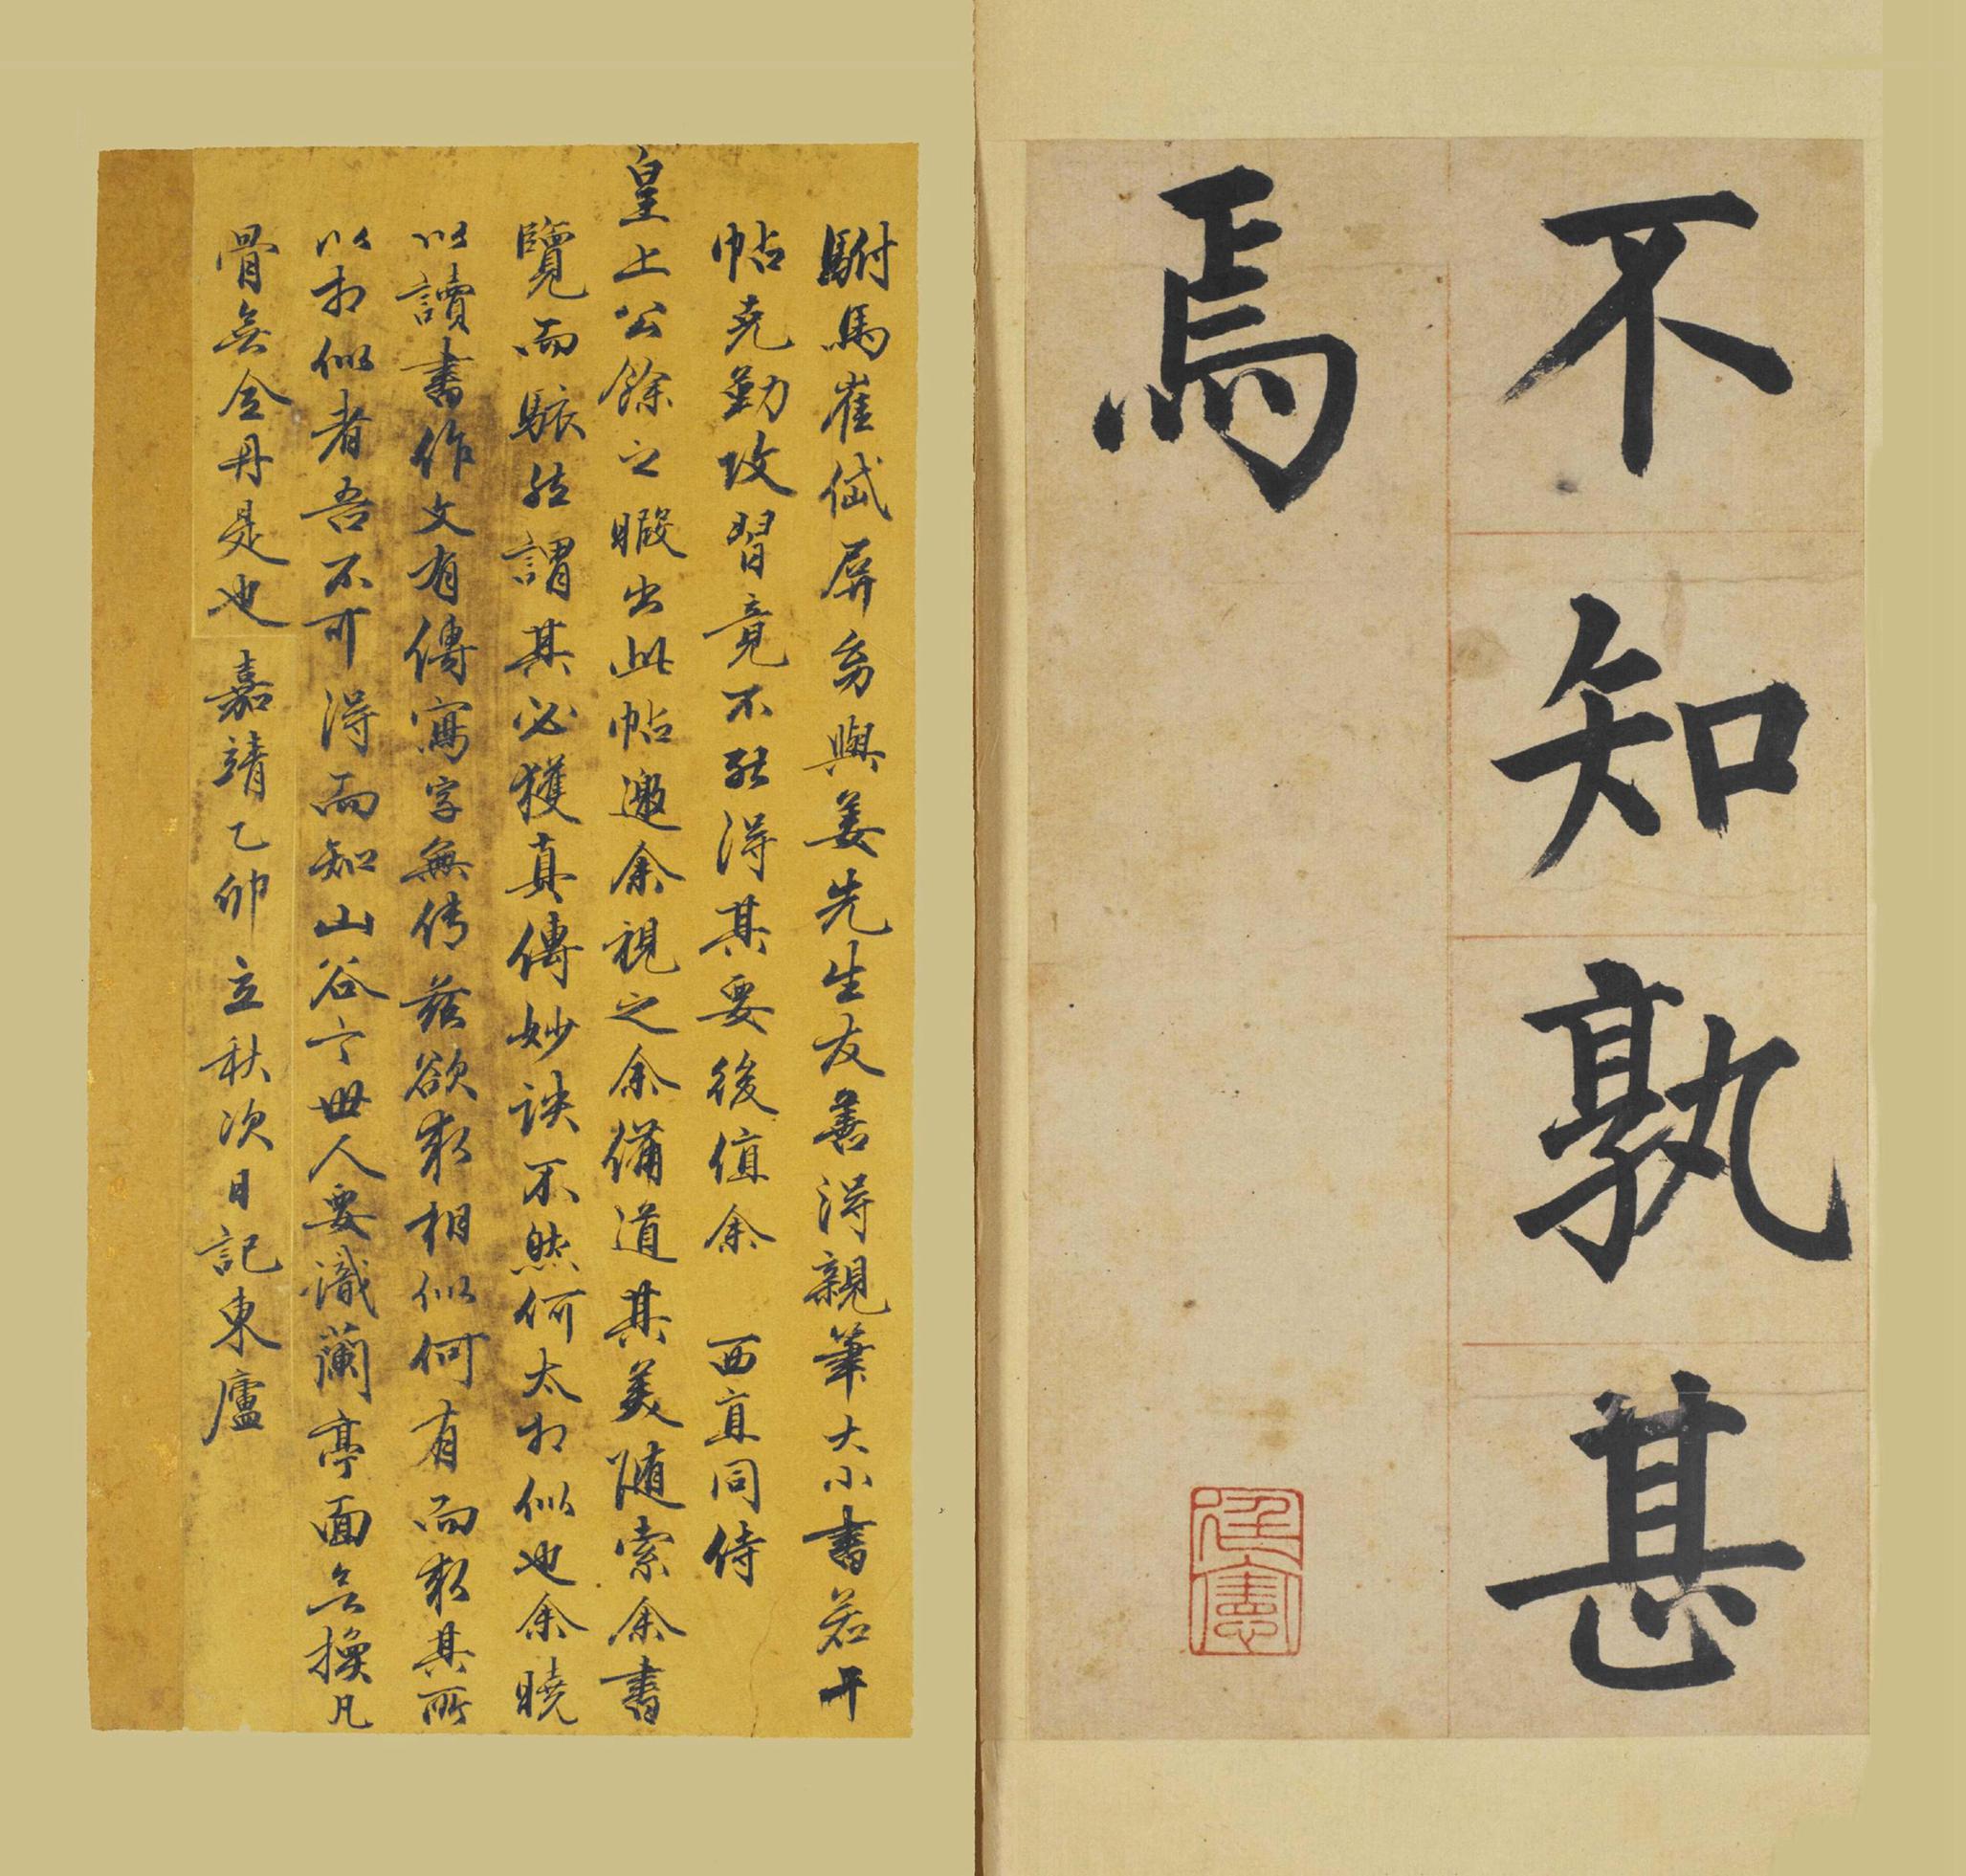 不知孰甚
焉
廷憲
駙馬崔岱屏翁與姜先生友善得親筆大小書若干
帖克勤攻習竟不能得其要後值余 西直同侍
皇上公餘之暇出此帖邀余視之余備道其美随索余書
覽而駭然謂其必獲真傳妙訣不然何太相似也余曉
以讀書作文有傳寫字無传茲欲求相似何有而求其所
以相似者吾不可得而知山谷云世人要識蘭亭面換凡
骨無金丹是也 嘉靖乙卯立秋次日記東廬